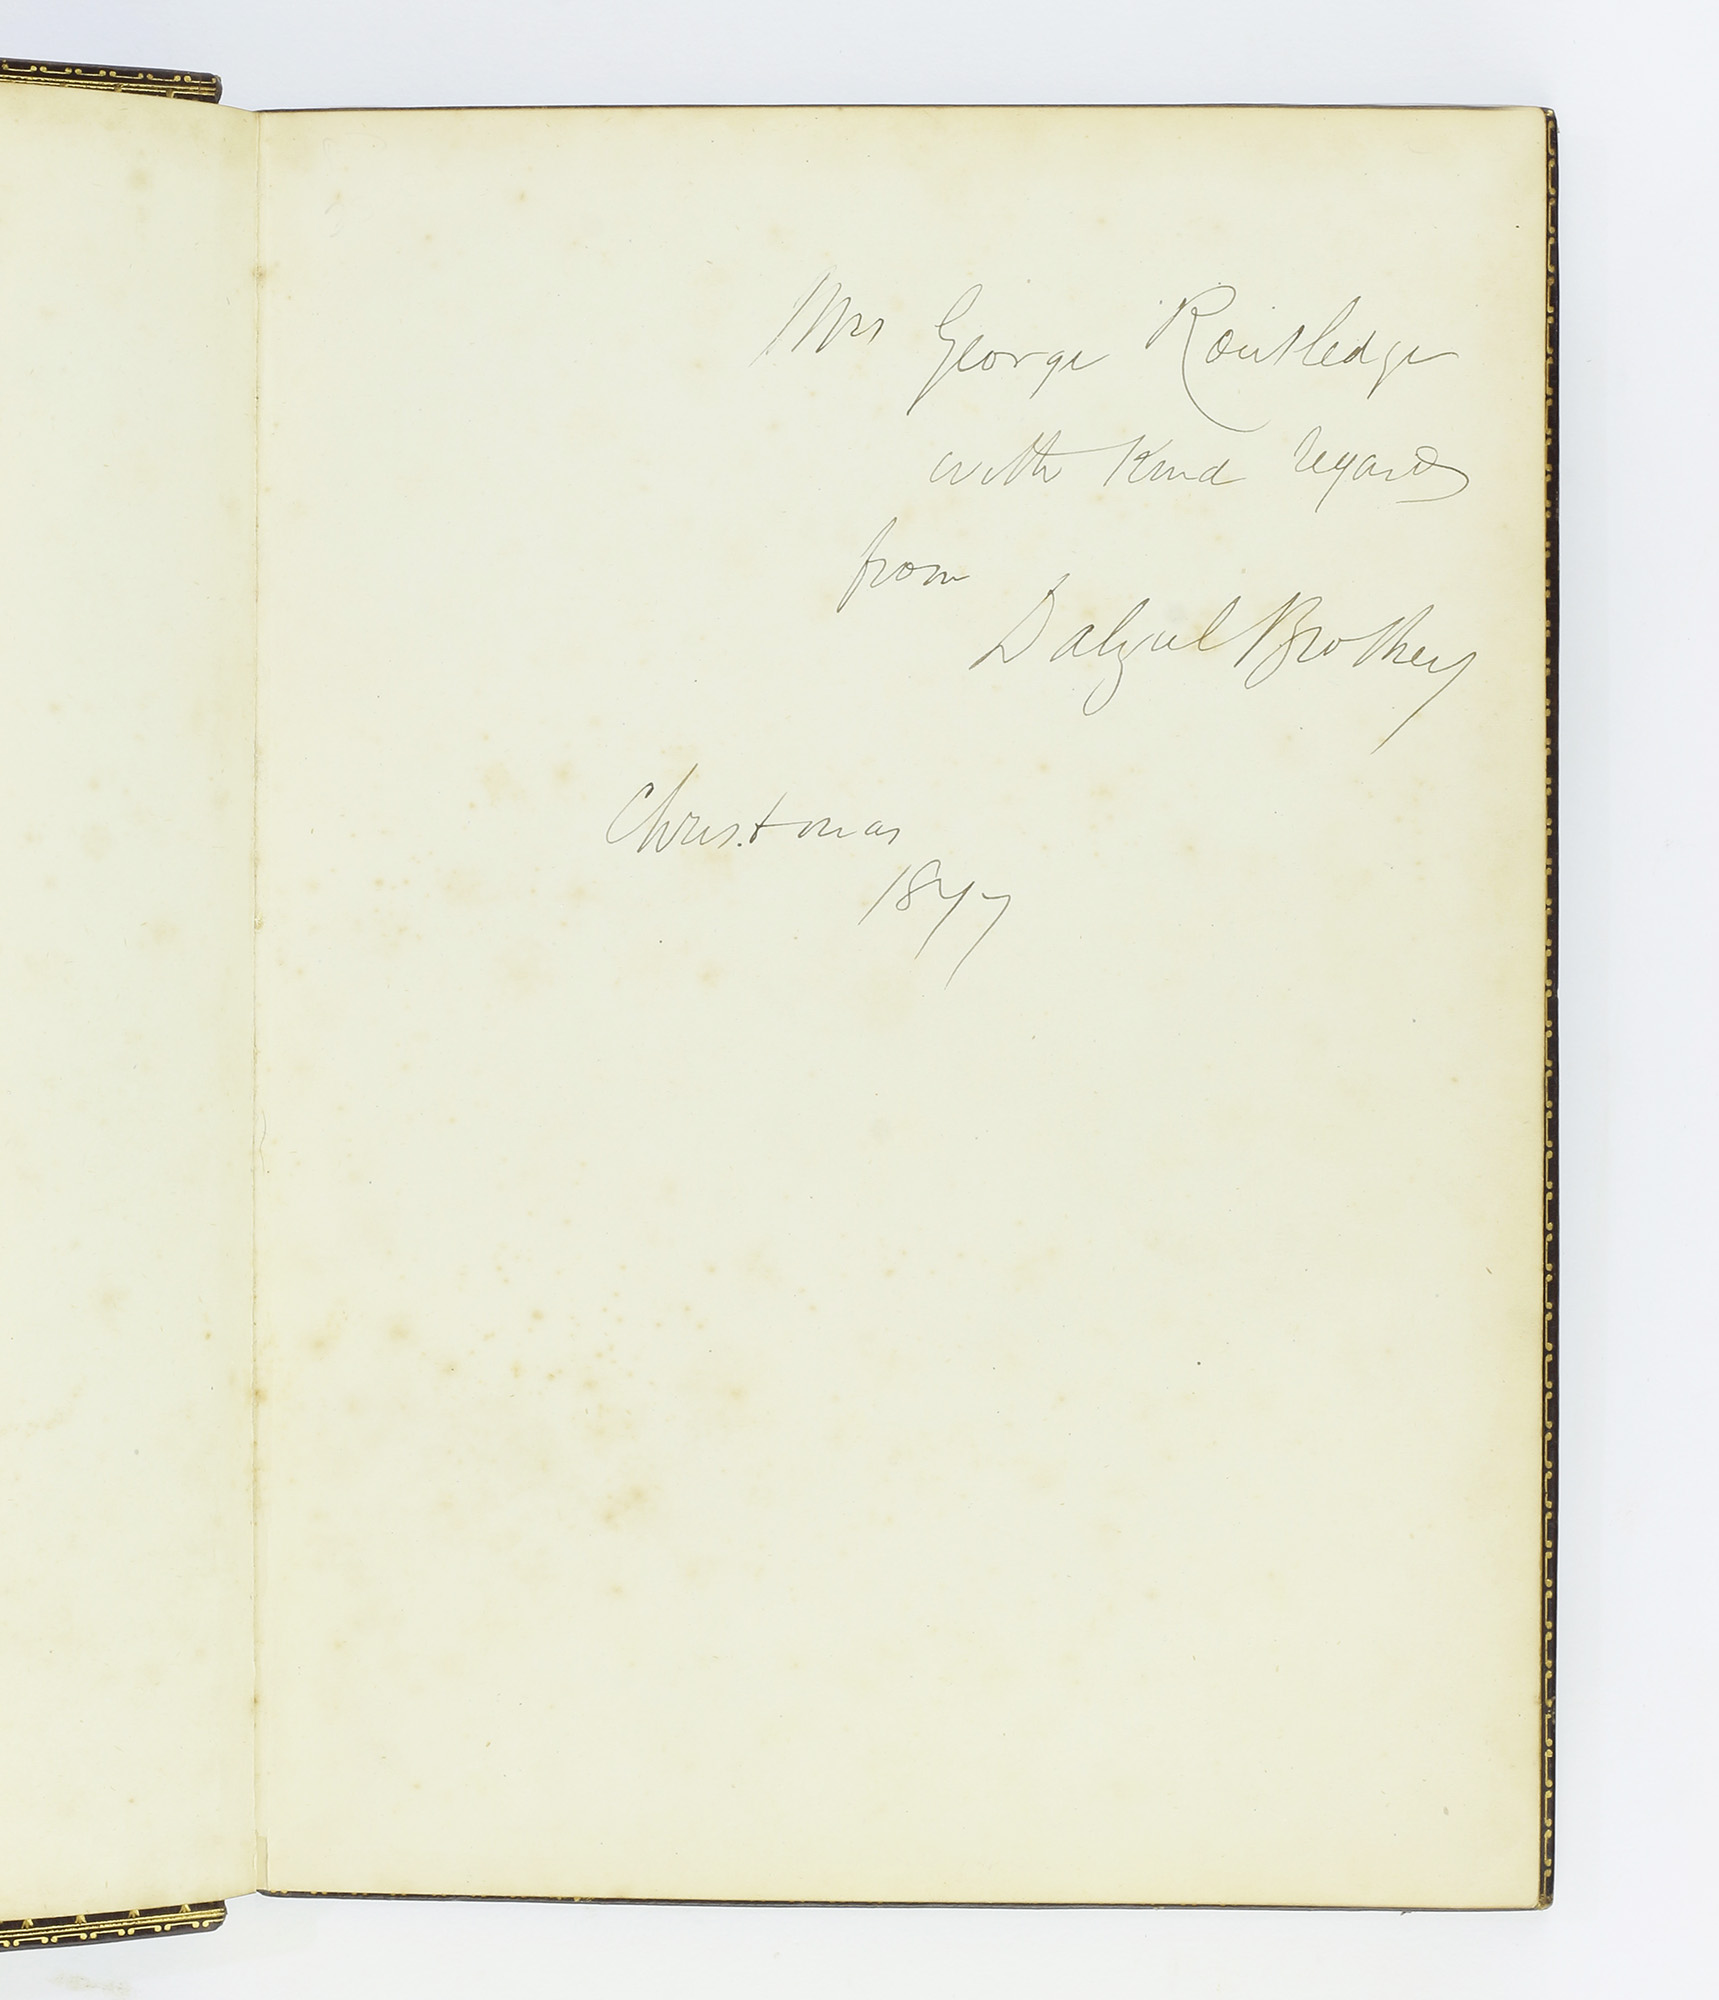 Mrs George Routledge
with Kind regards
from
Dalziel Brothers
Christmas
1877